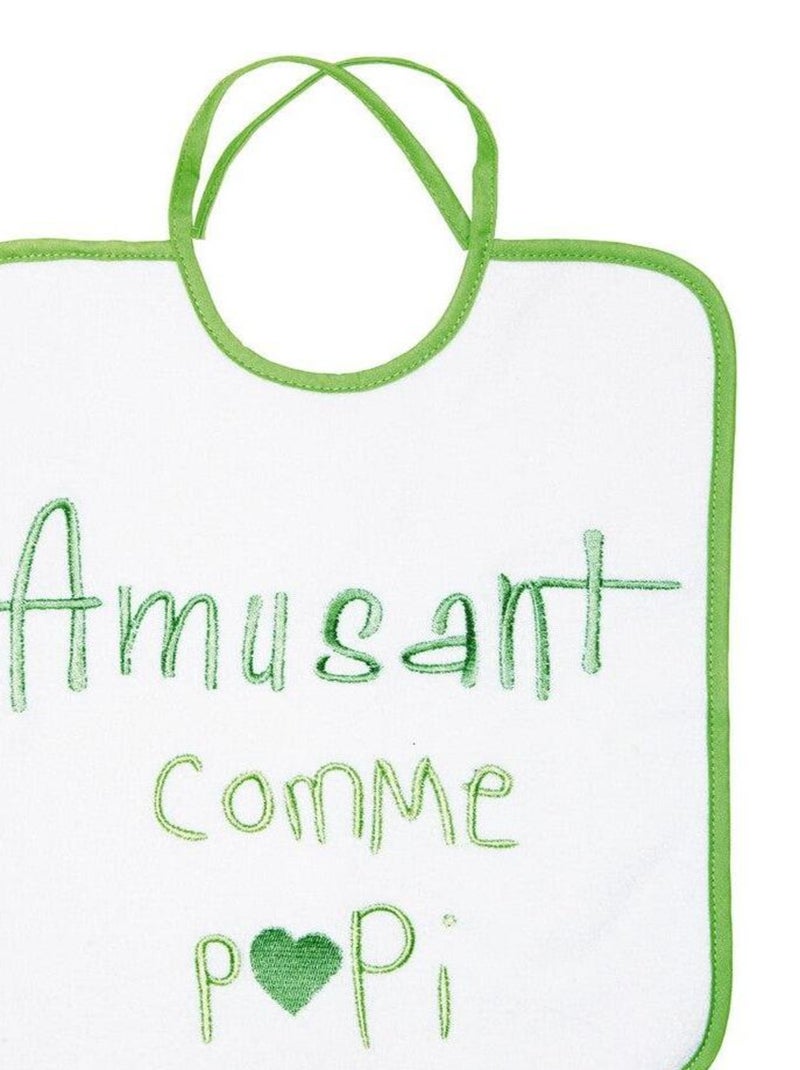 Amusant
comme
p♥pi